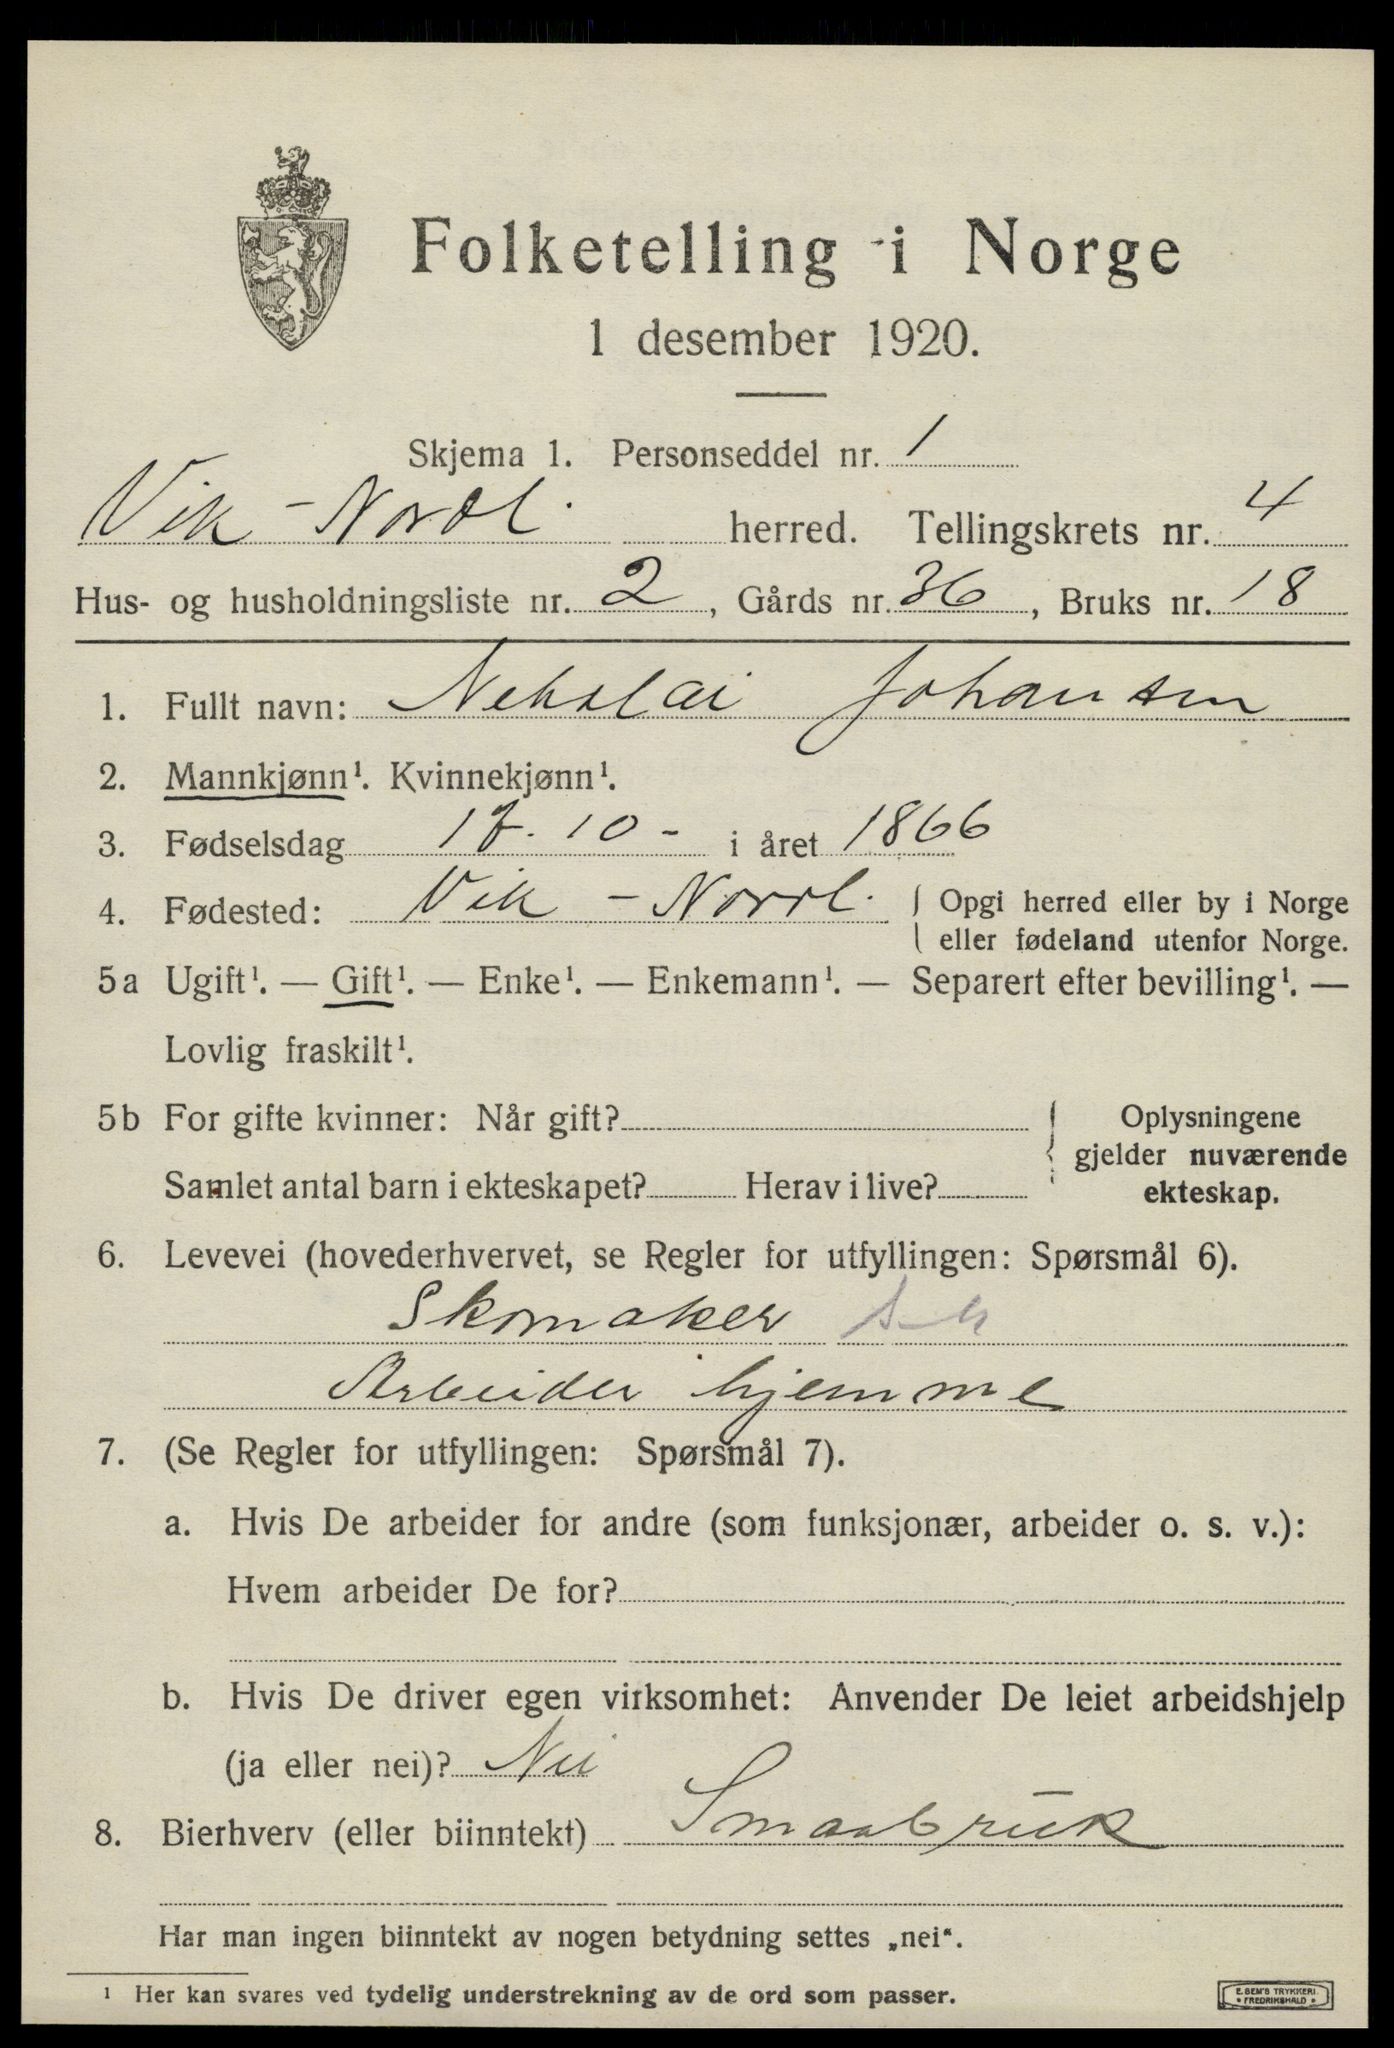 Folketelling i Norge
1 desember 1920.
Skjema 1. Personseddel nr. 1
Vik - Nordl. herred. Tellingskrets nr. 4
Hus- og husholdningsliste nr. 2, Gårds nr. 36, Bruks nr. 18
1. Fullt navn: Nekolai Johansen
2. Mannkjønn¹. Kvinnekjønn¹.
3. Fødselsdag 17. 10 - i året 1866
4. Fødested: Vik - Nordl. { Opgi herred eller by i Norge
eller fødeland utenfor Norge.
5a Ugift¹. — Gift¹. — Enke¹. — Enkemann¹. — Separert efter bevilling¹. —
Lovlig fraskilt¹.
5b For gifte kvinner: Når gift? { Oplysningene
gjelder nuværende
Samlet antal barn i ekteskapet? Herav i live? ekteskap.
6. Levevei (hovederhvervet, se Regler for utfyllingen: Spørsmål 6).
Skomaker
Arbeider hjemme
7. (Se Regler for utfyllingen: Spørsmål 7).
a. Hvis De arbeider for andre (som funksjonær, arbeider o. s. v.):
Hvem arbeider De for?
b. Hvis De driver egen virksomhet: Anvender De leiet arbeidshjelp
(ja eller nei)? Nei
8. Bierhverv (eller biinntekt) Smaabruk
Har man ingen biinntekt av nogen betydning settes „nei“.
¹ Her kan svares ved tydelig understrekning av de ord som passer.
E. SEM'S TRYKKERI
• FREDRIKSHALD •